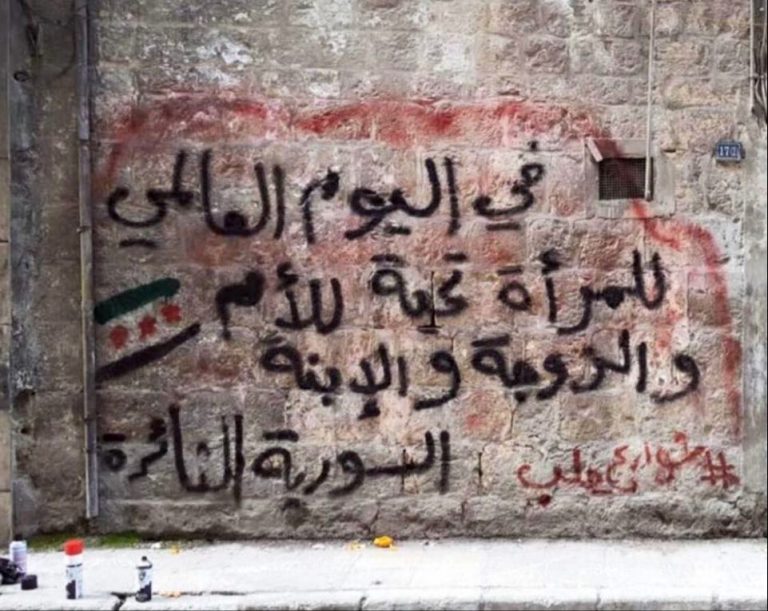 في اليوم العالمي
للمرأة تحية للأم
و الزوجة و الإبنة
السورية الثائرة
#شوارع_حلب